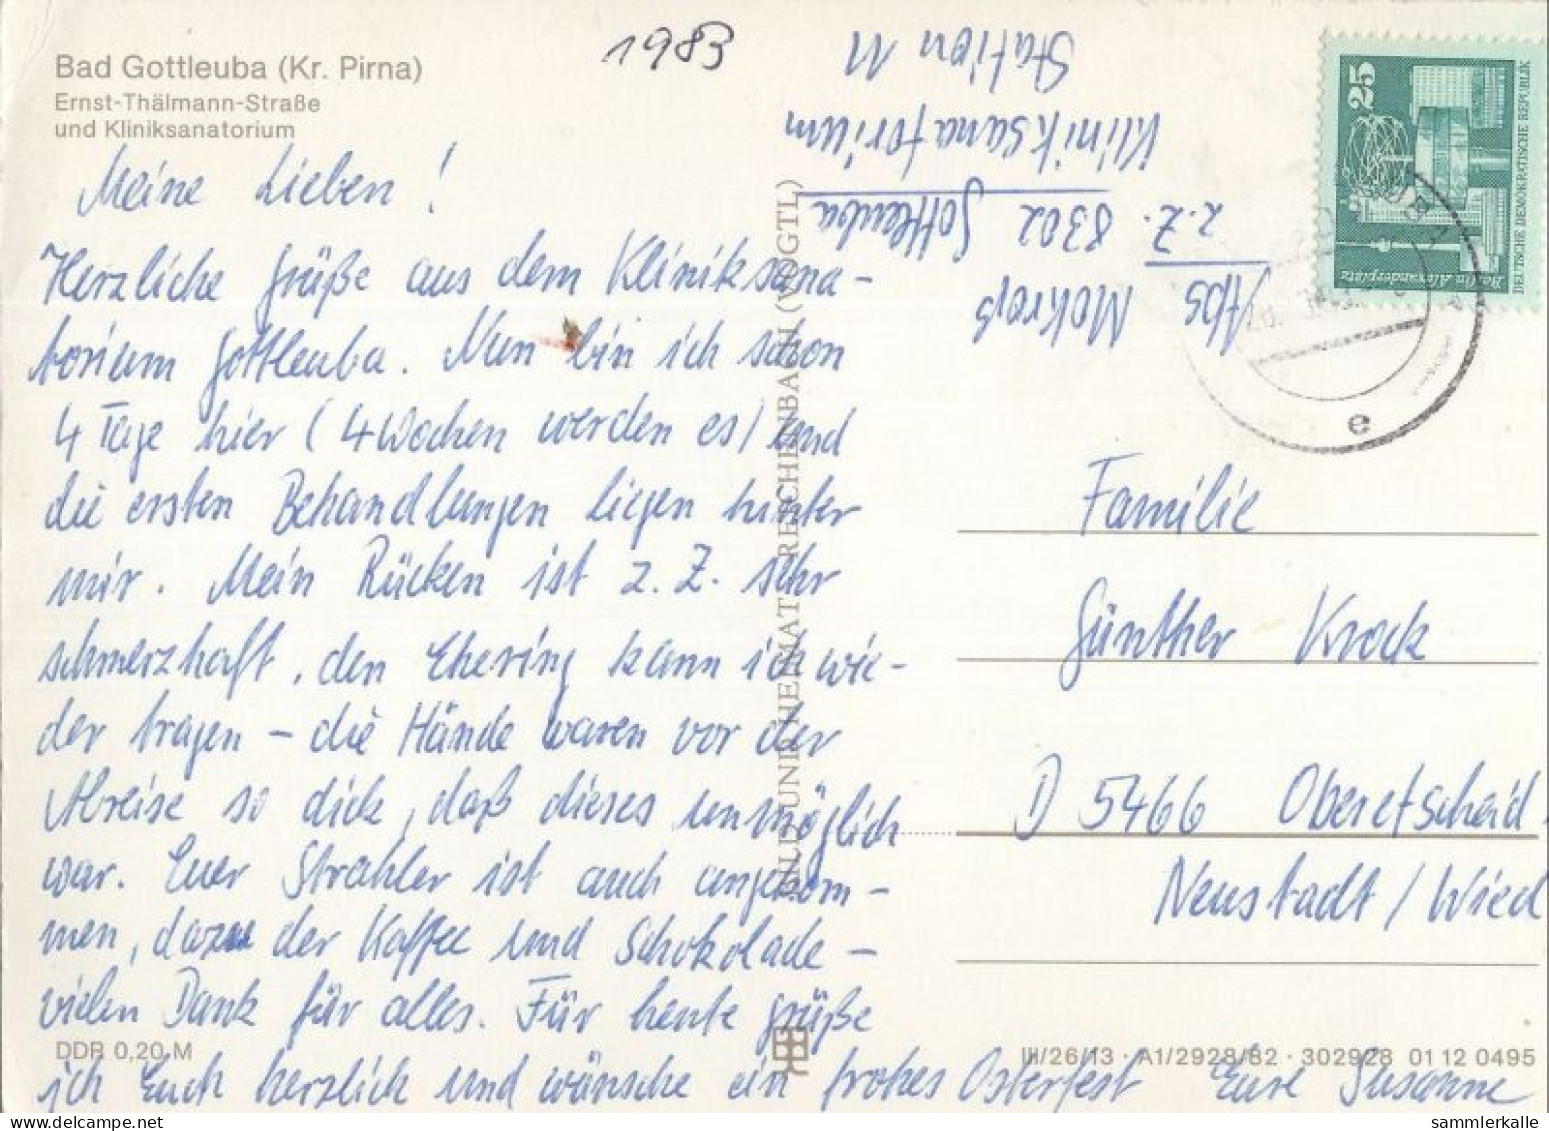 Bad Gottleuba (Kr. Pirna)
Ernst-Thälmann-Straße
und Kliniksanatorium
1983
Meine Lieben!
Herzliche Grüße aus dem Kliniksana-
torium Gottleuba. Nun bin ich schon
4 Tage hier (4 Wochen werden es) und
die ersten Behandlungen liegen hinter
mir. Mein Rücken ist z. Z. sehr
schmerzhaft, den Ehering kann ich wie-
der tragen - die Hände waren vor der
Abreise so dick, daß dieses unmöglich
war. Euer Strahler ist auch angekom-
men, dazu der Kaffee und Schokolade -
vielen Dank für alles. Für heute grüße
ich Euch herzlich und wünsche ein frohes Osterfest Eure Susanne
DDR 0,20 M
BILD UND HEIMAT REICHENBACH (VOGTL)
III/26/13 · A1/2928/82 · 302928 01 12 0495
Abs
z. Z. 8302 Gottleuba
Kliniksanatorium
Station M
25
Berlin, Alexanderplatz
DEUTSCHE DEMOKRATISCHE REPUBLIK
e
Familie
Günther Krock
D 5466 Oberetscheid
Neustadt/Wied
sammlerkalle